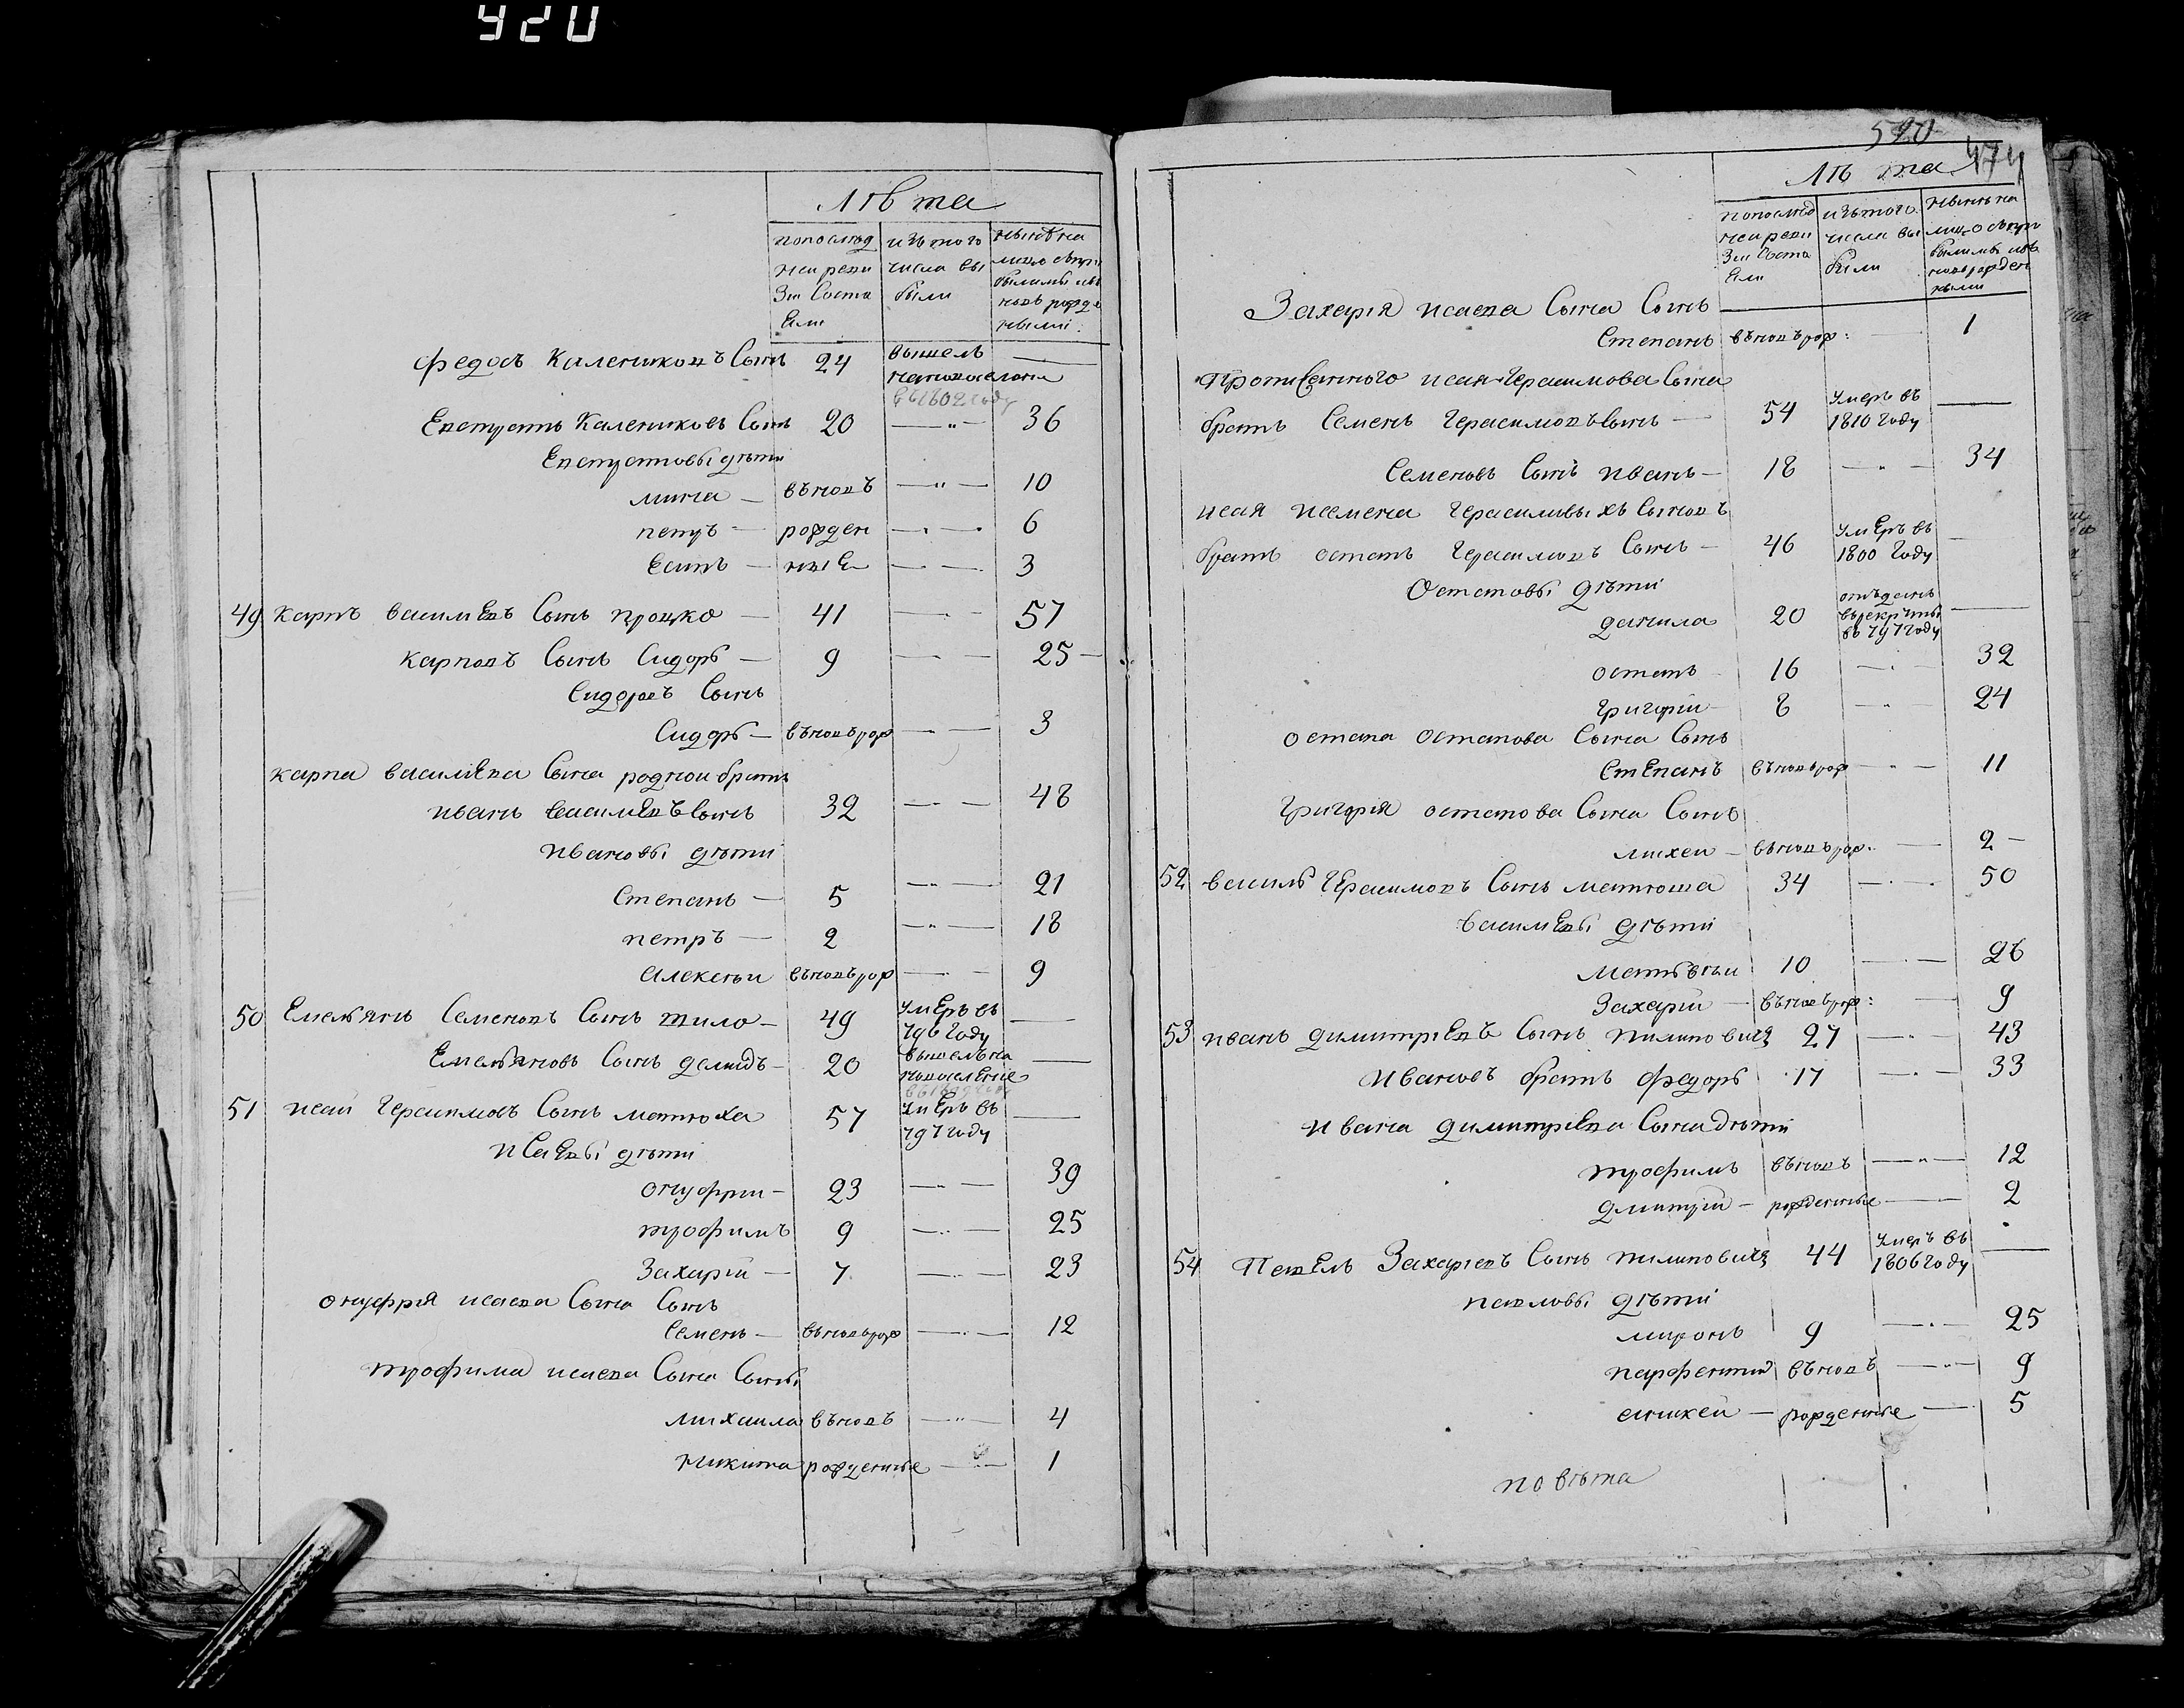 420
Лѣта
по послед
ней реви
зіи Состо
яли
изъ того
числа вы
были
Федоръ Калениковъ Сынъ 24 вышелъ —
на поселение
в 1802 году
Евстратъ Калениковъ Сынъ 20 — 36
Евстратовы дѣти
мина — вьновъ — 10
петръ — рожден — 6
Есипъ — ные — 3
49 карпъ василевъ Сынъ процко — 41 — 57
карповъ Сынъ Сидоръ — 9 — 25 —
Сидоровъ Сынъ
Сидоръ — вьновь рож — 3
карпа василева Сына родной братъ
иванъ василевъ Сынъ 32 — 48
ивановы дѣти
Степанъ — 5 — 21
петръ — 2 — 18
алексѣи вьновь рож — 9
50 Емельянъ Семеновъ Сынъ шило — 49 умеръ въ —
796 году
Емельяновъ Сынъ демидъ — 20 вышелъ на —
поселение
51 исай Герасимовъ Сынъ матюха 57 умеръ въ —
797 году
исаевы дѣти
онуфрии — 23 — 39
трофимъ 9 — 25
Захарій — 7 — 23
онуфрія исаева Сына Сынъ
Семенъ — вьновь рож — 12
трофима исаева Сына Сыны
михаила вьновъ — 4
никита рожденные — 1
520
474
Лѣта
по послед
ней реви
зіи Соста
яли
изъ того
числа вы
были
Захарія исаева Сына Сынъ
Степанъ вьновь рож: — 1
прописанного исая Герасимова Сына
братъ Семенъ Герасимовъ Сынъ — 54 умеръ въ —
1810 году
Семеновъ Сынъ иванъ — 18 — 34
исая и семена Герасимовыхъ Сыновъ
братъ остапъ Герасимовъ Сынъ — 46 умеръ въ —
1800 году
Остаповы дѣти
данила 20 отъданъ —
въ рекруты
въ 797 году
остапъ 16 — 32
григорій 8 — 24
остапа остапова Сына Сынъ
степанъ вьновь рож — 11
григорія остапова Сына Сынъ
михеи — вьновь рож. — 2 —
52 василь Герасимовъ Сынъ матюша 34 — 50
василевы дѣти
матвѣи 10 — 26
Захарій — вьновь рож: — 9
53 иванъ димитріевъ Сынъ пилиповичъ 27 — 43
ивановъ братъ федоръ 17 — 33
ивана димитріева Сына дѣти
трофимъ вьновъ — 12
дмитрій — рожденные — 2
54 павелъ Захаріевъ Сынъ пилиповичъ 44 умеръ въ —
1806 году
павловы дѣти
миронъ 9 — 25
парфентій вьновъ — 9
рожденные — 5
повѣта